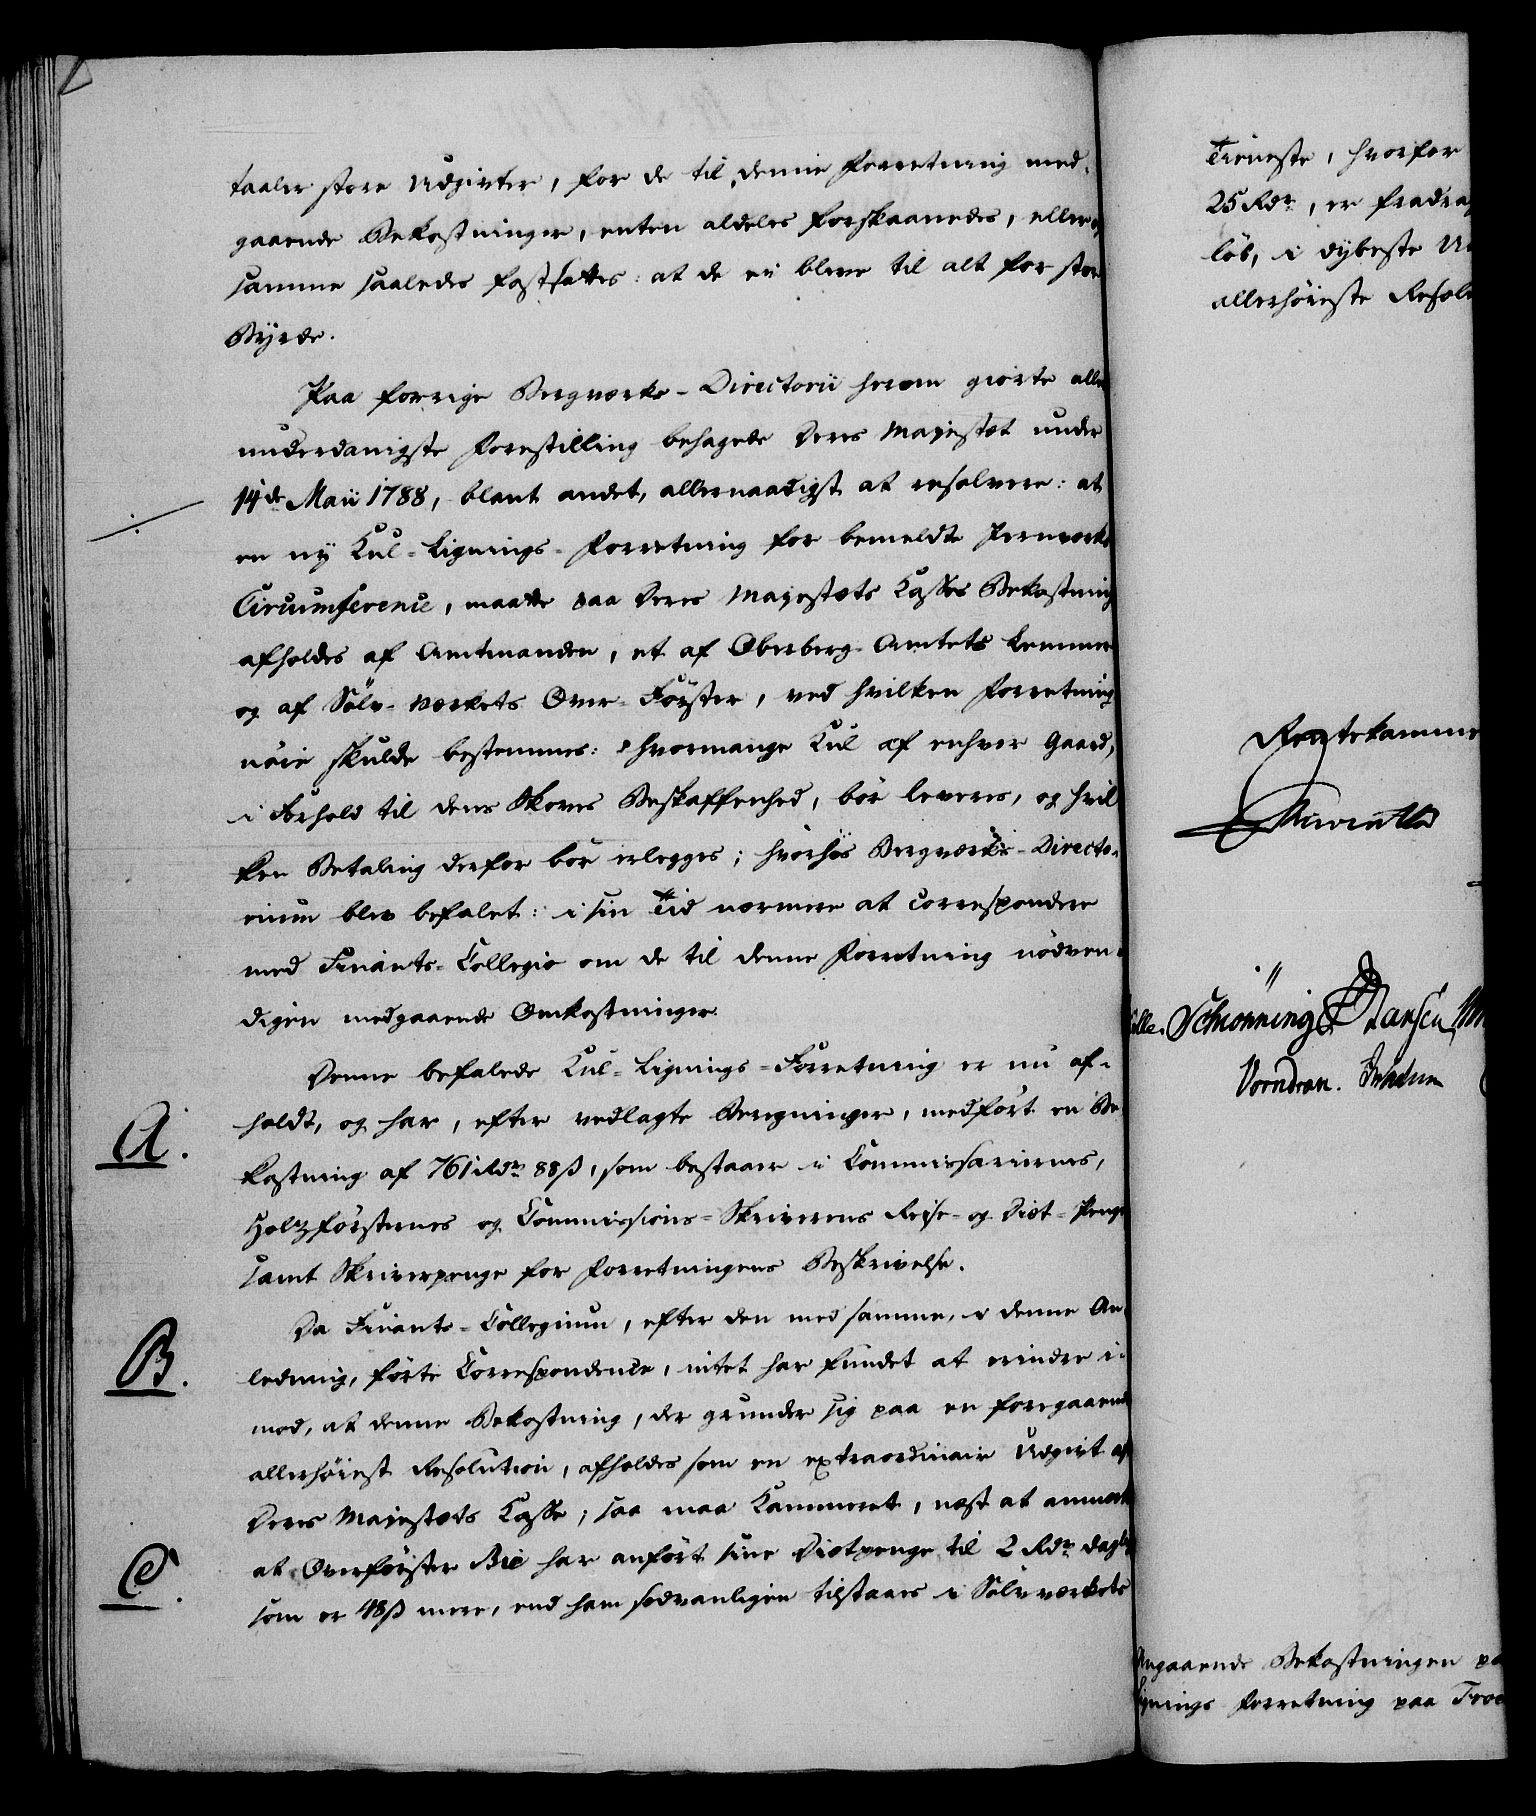 taaler store Udgivter, for de til denne Forretning med-
gaaende Bekostninger, enten aldeles forskaanedes, eller
samme saaledes fastsattes: at de ei bleve til alt for stor
Byrde.
Paa forrige Bergverks-Directorii herom giorte aller
underdanigste Forestilling behagede Deres Majestæt under
14de Maii 1788, blant andet, allernaadigst at resolvere: at
en ny Kul-Lignings-Forretning for bemeldte Jernverks
Circumference, maatte paa Deres Majestæts Casses Bekostning
afholdes af Amtmanden, et af Oberberg-Amtets Lemmer
og af Sølv-værkets Over-Førster, ved hvilken Forretning
nøie skulde bestemmes: hvormange Kul af enhver Gaard,
i Forhold til dens Skovs Beskaffenhed, bør leveres, og hvil
ken Betaling derfor bør erlegges; hvorhos Bergværks-Directo-
rium blev befalet: i sin Tid nærmere at correspondere
med Finants-Collegio om de til denne Forretning nødven-
digen medgaaende Omkostninger.
Denne befalede Kul-Lignings-Forretning er nu af-
holdt, og har, efter vedlagte Beregninger, medført en Be
A.
kostning af 761 Rdr 88 ß, som bestaaer i Commissariernes,
Holtzførsternes og Commissions-Skriverens Reise- og Diæt-Penge
samt Skriverpenge for Forretningens Beskrivelse.
Da Finants-Collegium, efter den med samme, i denne An-
B.
ledning, førte Correspondence, intet har fundet at erindre i-
mod, at denne Bekostning, der grunder sig paa en foregaaende
allerhøiest Resolution, afholdes som en extraordinair Udgivt af
Deres Majestæts Casse; saa maa Kammeret, næst at anmærke
at Overførster Bie har anført sine Diætpenge til 2 Rdr daglig
C.
som er 48 ß mere, end ham sædvanligen tilstaaes i Sølvværkets
Tieneste, hvorfor
25 Rdr, er fradrag
løb, i dybeste Un
allerhøieste Resol
Rentekamme
Schiønning Hansen
Vorndran.
Angaaende Bekostningen pa
Lignings Forretning paa Froe